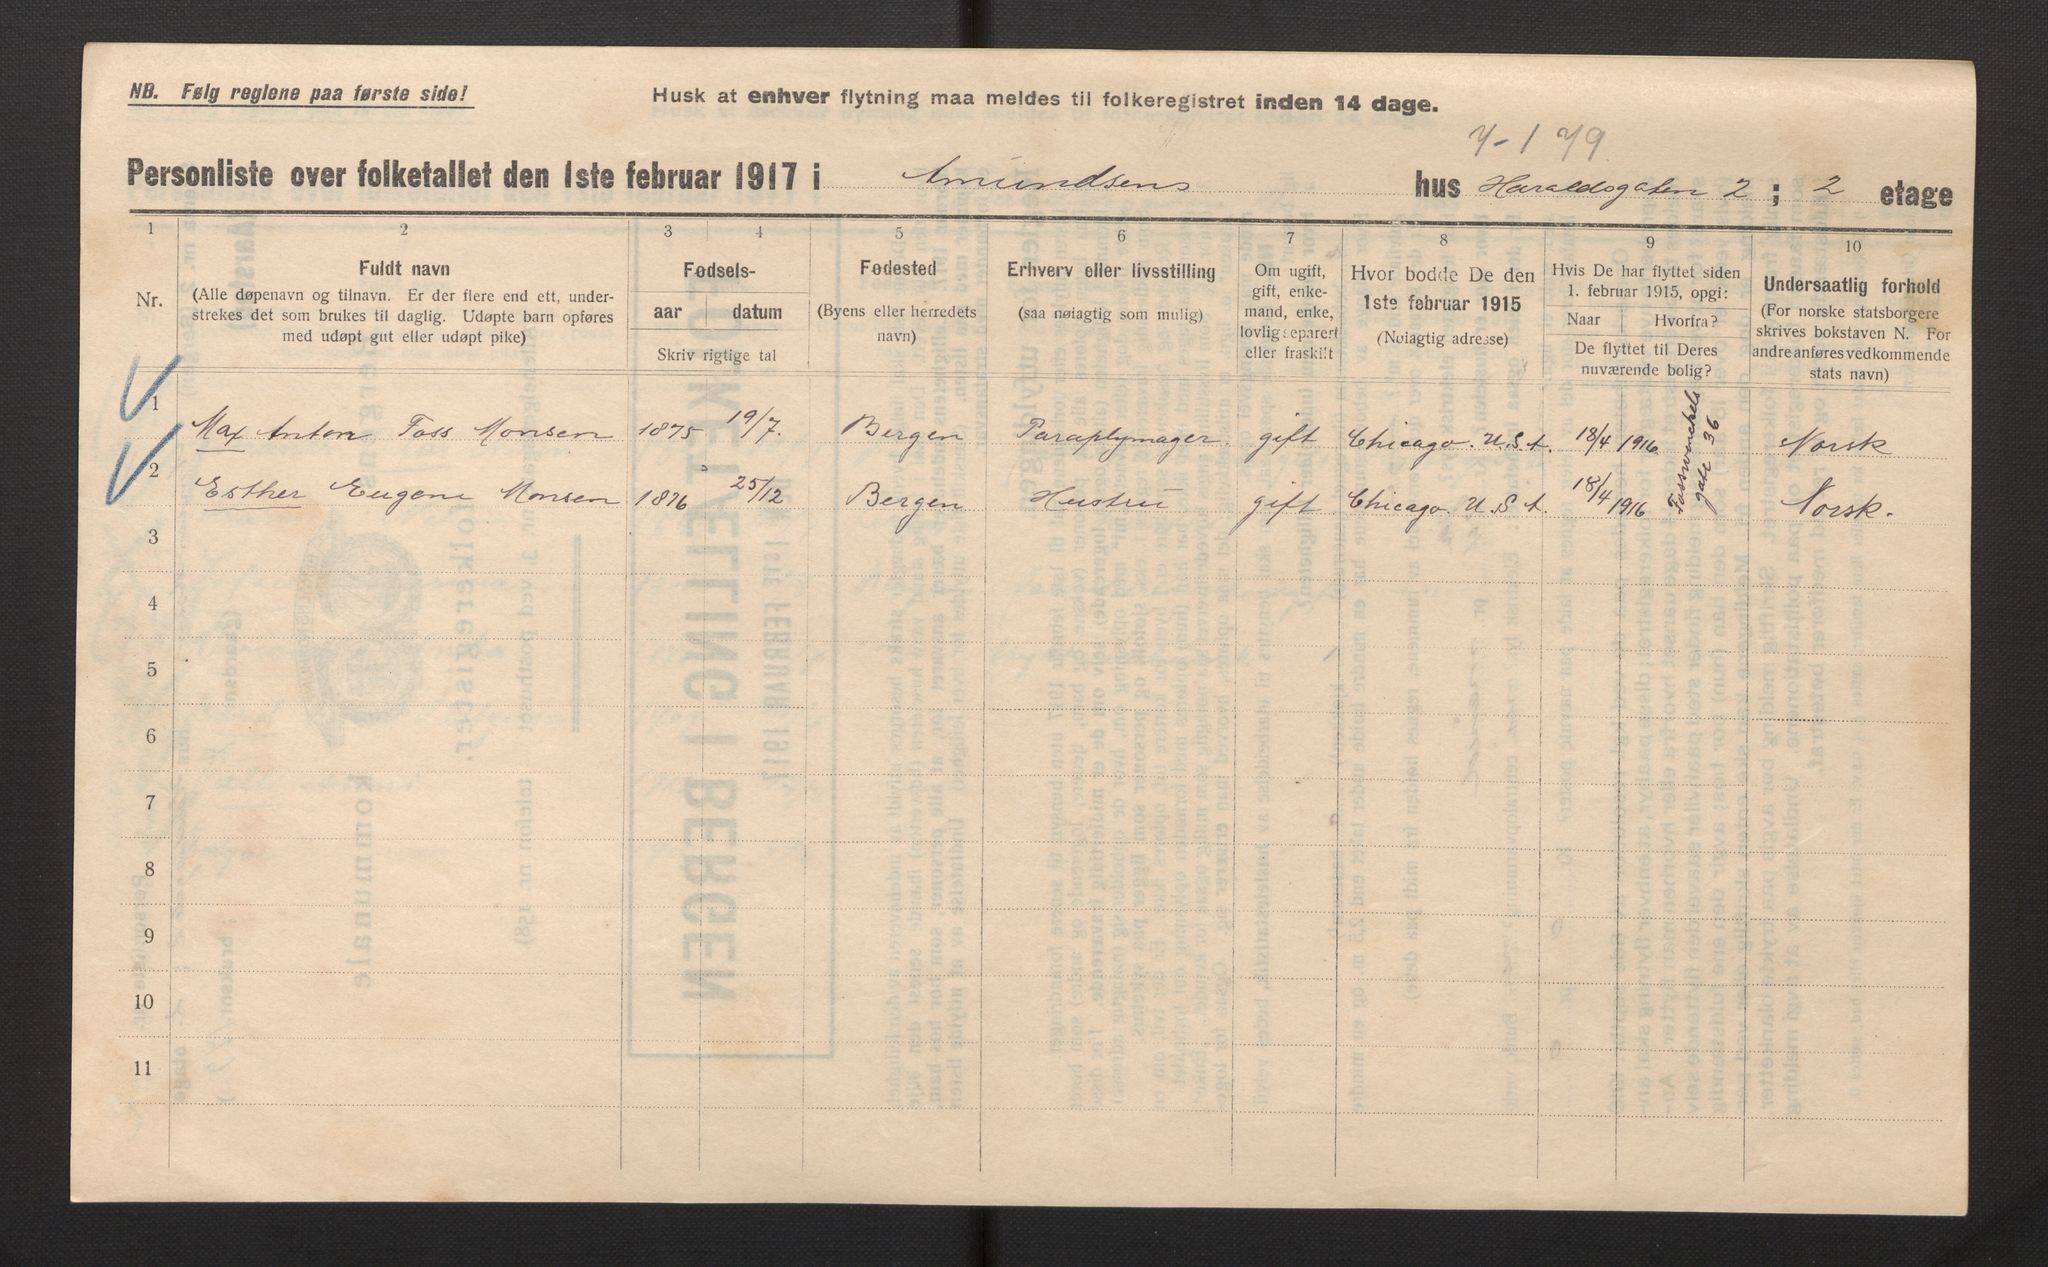 NB. Følg reglene paa første side!
Husk at enhver flytning maa meldes til folkeregistret inden 14 dage.
Personliste over folketallet den 1ste februar 1917 i Amundsens hus Haraldsgaten 2 ; 2 etage
1 2 3 4 5 6 7 8 9 10
Nr.
Fuldt navn
(Alle døpenavn og tilnavn. Er der flere end ett, under-
strekes det som brukes til daglig. Udøpte barn opføres
med udøpt gut eller udøpt pike)
Fødsels-
aar datum
Skriv rigtige tal
Fødested
(Byens eller herredets
navn)
Erhverv eller livsstilling
(saa nøiagtig som mulig)
Om ugift,
gift, enke-
mand, enke,
lovlig separert
eller fraskilt
Hvor bodde De den
1ste februar 1915
(Nøiagtig adresse)
Hvis De har flyttet siden
1. februar 1915, opgi:
Naar Hvorfra?
De flyttet til Deres
nuværende bolig?
Undersaatlig forhold
(For norske statsborgere
skrives bokstaven N. For
andre anføres vedkommende
stats navn)
1 Max Anton Foss Monsen 1875 19/7. Bergen Paraplymager. gift Chicago. U.S.A. 18/4 1916 Norsk
2 Esther Eugene Monsen 1876 25/12 Bergen Hustru gift Chicago. U.S.A. 18/4 1916 Norsk.
gate 36
3
4
5
6
7
8
9
10
11